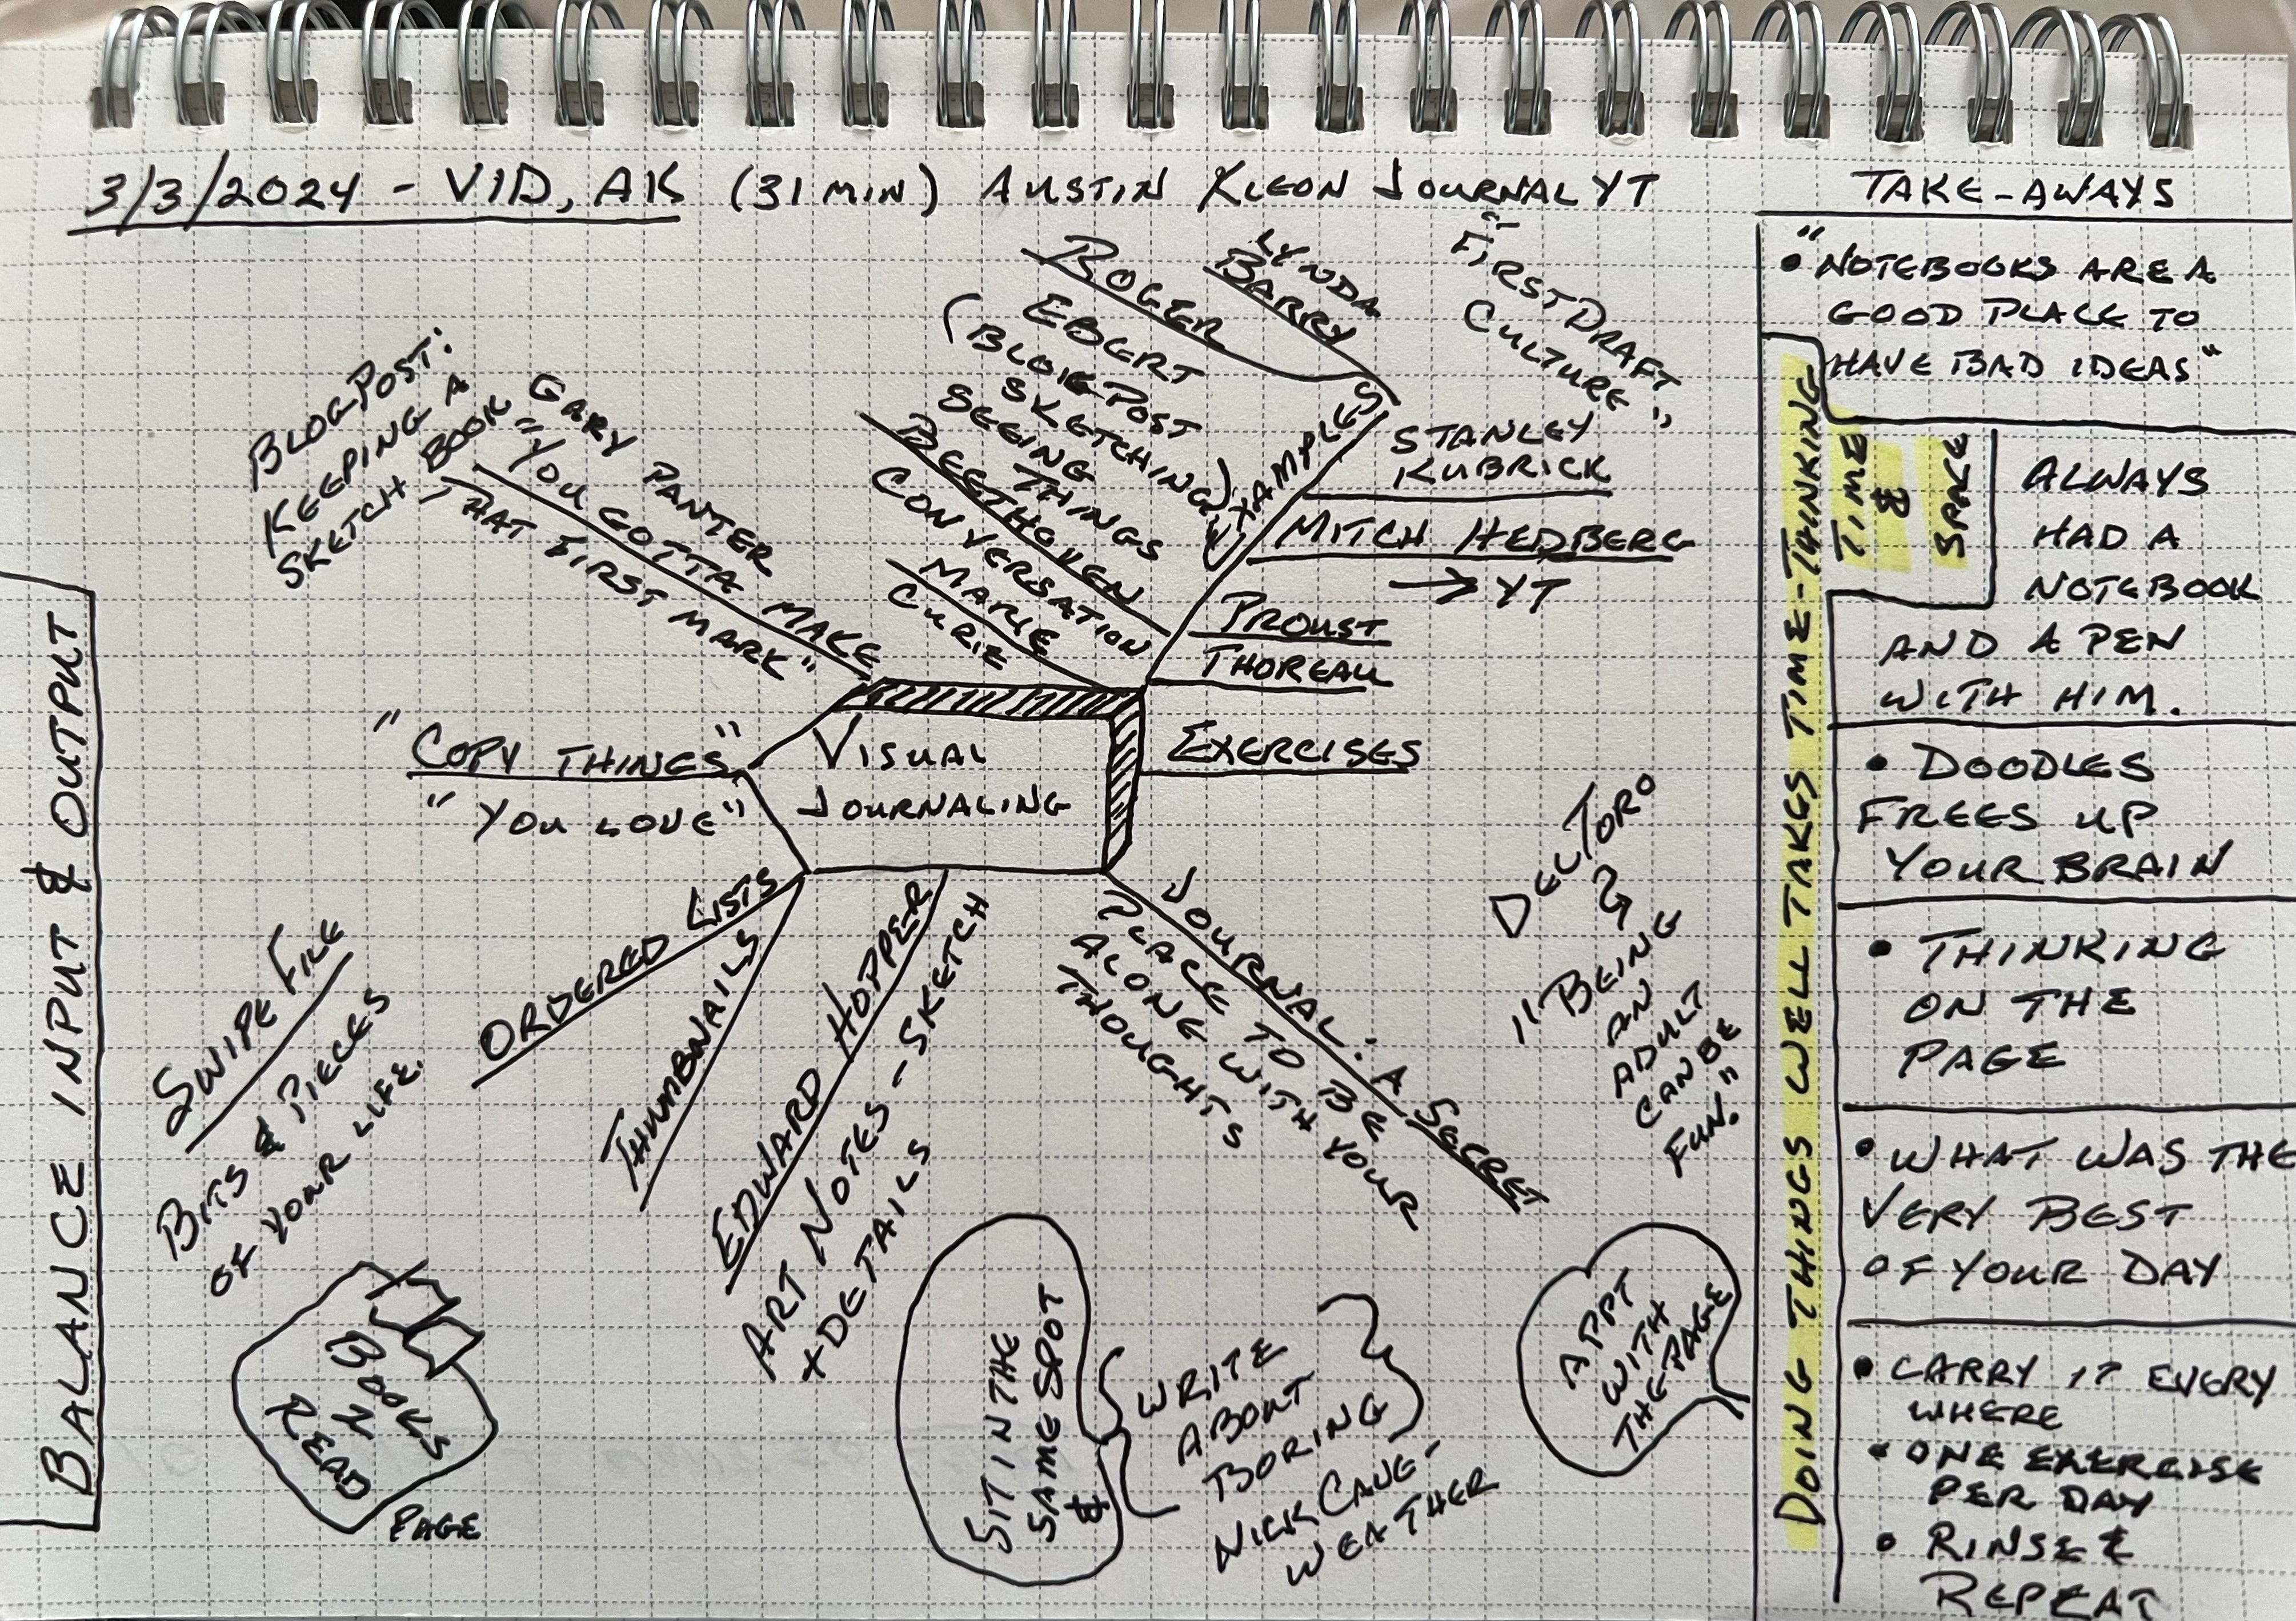 3/3/2024 - VID, AK (31 MIN) AUSTIN KLEON JOURNAL YT
TAKE-AWAYS
BLOG POST:
KEEPING A
SKETCH BOOK
GARY PANTER
"YOU GOTTA MAKE
THAT FIRST MARK"
ROGER
EBERT
(BLOG POST
SKETCHING)
SEEING
THINGS
LYNDA
BARRY
"FIRST DRAFT
CULTURE"
EXAMPLES
BEETHOVEN
CONVERSATION
MARIE
CURIE
STANLEY
KUBRICK
MITCH HEDBERG
→ YT
PROUST
THOREAU
VISUAL
JOURNALING
EXERCISES
"COPY THINGS"
"YOU LOVE"
ORDERED LISTS
THUMBNAILS
EDWARD HOPPER
ART NOTES - SKETCH
+ DETAILS
JOURNAL: A SECRET
PLACE TO BE
ALONE WITH YOUR
THOUGHTS
DEL TORO
"BEING
AN
ADULT
CAN BE
FUN."
BALANCE INPUT & OUTPUT
SWIPE FILE
BITS & PIECES
OF YOUR LIFE.
BOOKS
2
READ
PAGE
SIT IN THE
SAME SPOT
&
WRITE
ABOUT
BORING
NICK CAVE -
WEATHER
APPT
WITH
THE PAGE
DOING THINGS WELL TAKES TIME - THINKING
TIME
&
SPACE
• "NOTEBOOKS ARE A
GOOD PLACE TO
HAVE BAD IDEAS"
ALWAYS
HAD A
NOTEBOOK
AND A PEN
WITH HIM.
• DOODLES
FREES UP
YOUR BRAIN
• THINKING
ON THE
PAGE
• WHAT WAS THE
VERY BEST
OF YOUR DAY
• CARRY IT EVERY
WHERE
• ONE EXERCISE
PER DAY
• RINSE &
REPEAT